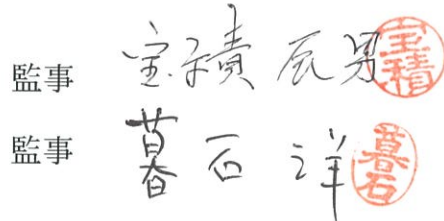 監事 宝積 辰男 宝積
監事 暮石 洋 暮石